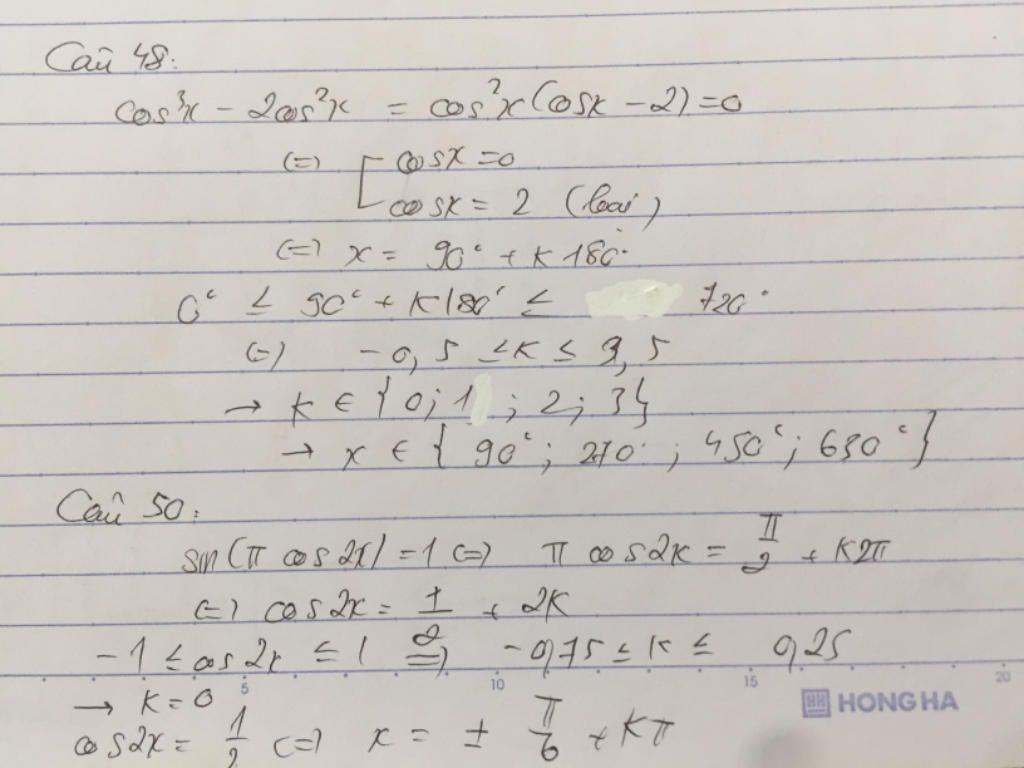 Câu 48:
cos³x - 2cos²x = cos²x(cosx - 2) = 0
(=) [ cosx = 0
cosx = 2 (loại)
(=) x = 90° + K180°
0° ≤ 90° + K180° ≤ 720°
(=) -0,5 ≤ K ≤ 3,5
→ K ∈ {0; 1; 2; 3}
→ x ∈ {90°; 270°; 450°; 630°}
Câu 50:
sin(π cos2x) = 1 (=) π cos2x = π/2 + K2π
(=) cos2x = 1/2 + 2K
-1 ≤ cos2x ≤ 1 (=) -0,75 ≤ K ≤ 0,25
→ K = 0
5 10 15 20
HONG HA
cos2x = 1/2 (=) x = ± π/6 + Kπ